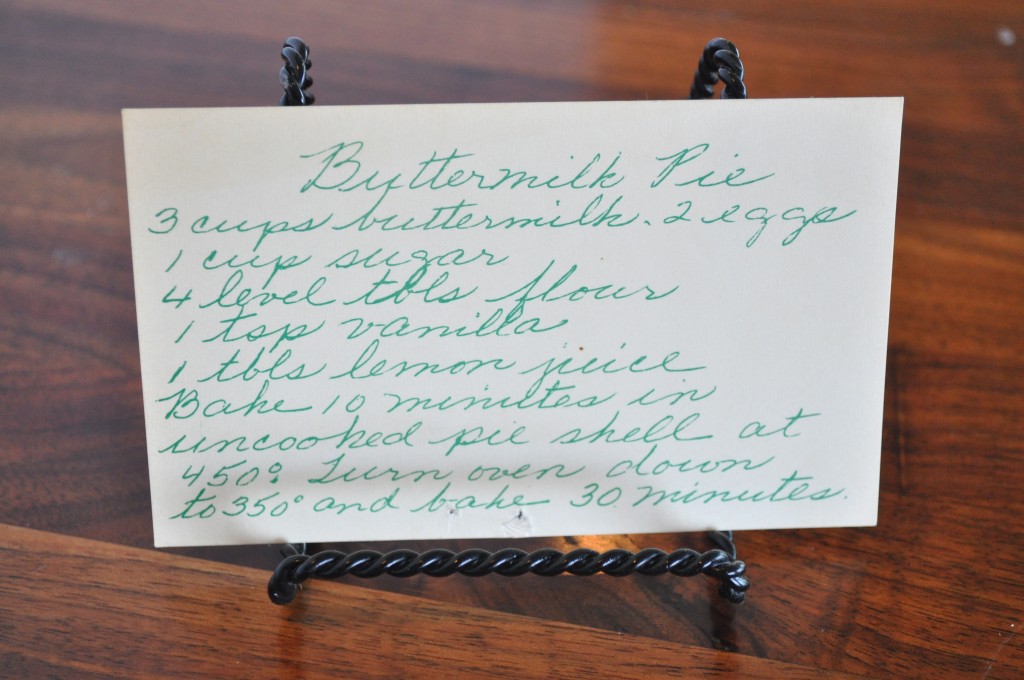 Buttermilk Pie
3 cups buttermilk. 2 eggs
1 cup sugar
4 level tbls flour
1 tsp vanilla
1 tbls lemon juice
Bake 10 minutes in
uncooked pie shell at
450°. Turn oven down
to 350° and bake 30 minutes.